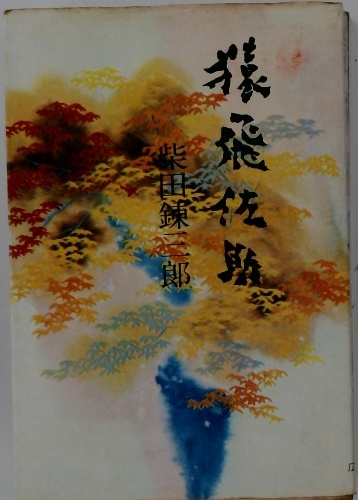 猿飛佐助
柴田錬三郎